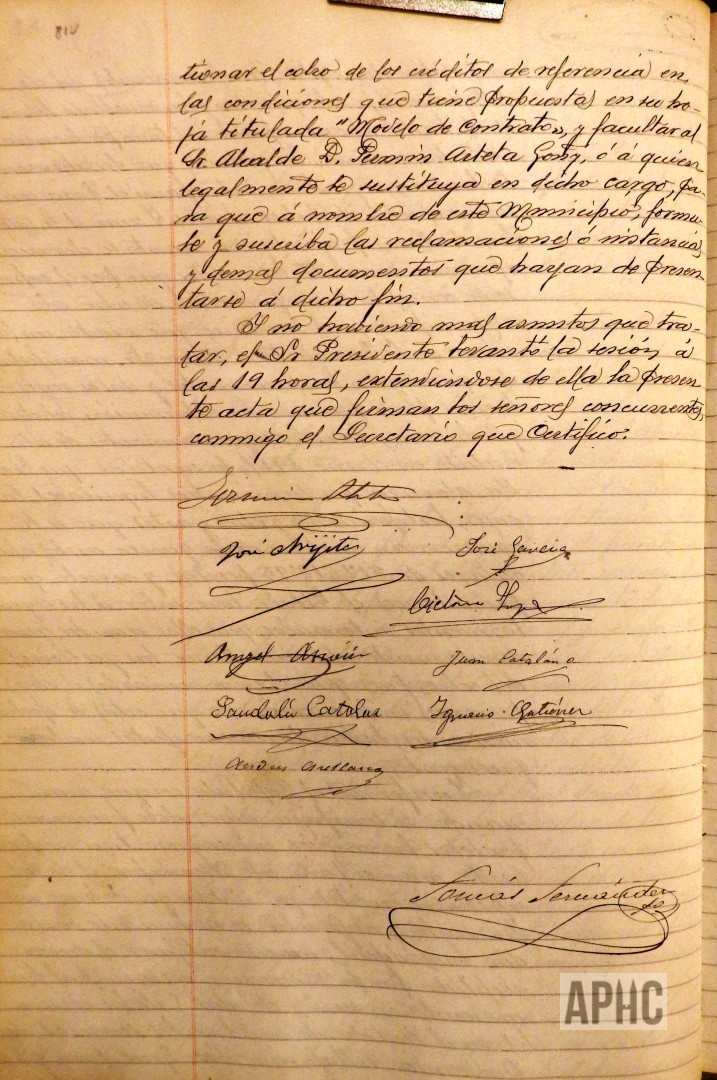 tionar el cobro de los créditos de referencia en
las condiciones que tiene propuestas en su ho-
ja titulada "Modelo de Contrato", y facultar al
Sr. Alcalde D. Fermín Arteta Gonz, ó á quien
legalmente le sustituya en dicho cargo, pa-
ra que á nombre de este Municipio, formu-
le y suscriba las reclamaciones ó instancias
y demas documentos que hayan de presen-
tarse á dicho fin.
Y no habiendo mas asuntos que tra-
tar, el Sr Presidente levantó la sesión, á
las 19 horas, extendiéndose de ella la presen-
te acta que firman los señores concurrentes,
conmigo el Secretario que Certifico.
Fermin
José
José Garcia
Angel
Juan Catalán
Catalan
Ignacio Gutiérrez
Andres Arellano
Tomás Fernández
APHC